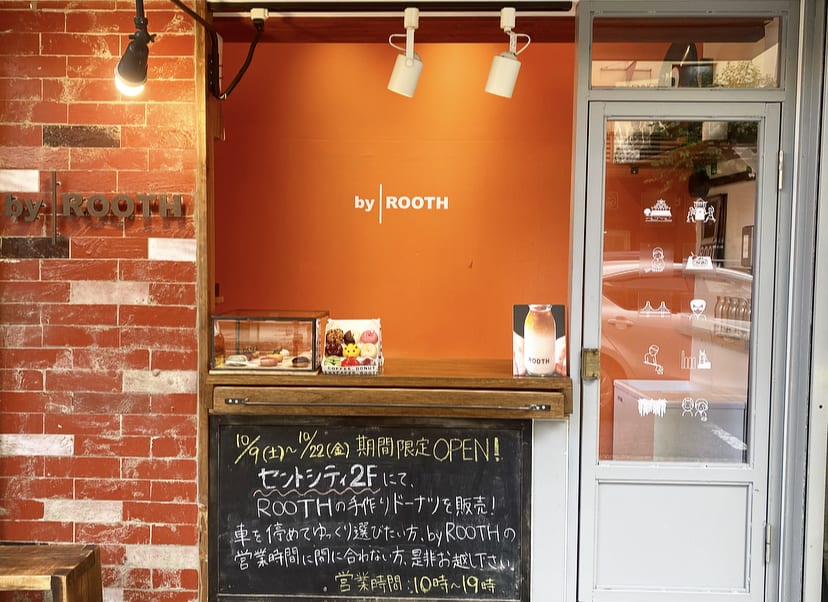 by ROOTH
by ROOTH
COFFEE, DONUT
ROOTH
10/9(土)〜10/22(金) 期間限定OPEN!
セントシティ2Fにて、
ROOTHの手作りドーナツを販売!
車を停めてゆっくり選びたい方、by ROOTHの
営業時間に間に合わない方、是非お越し下さい。
営業時間:10時〜19時